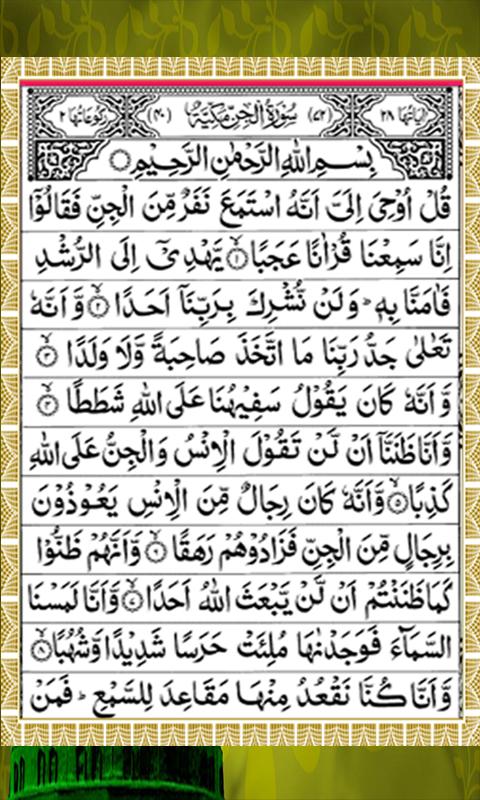 اٰيَاتُهَا ٢٨ (٧٢) سُوْرَةُ الْجِنِّ مَكِّيَّةٌ (٤٠) رُكُوْعَاتُهَا ٢
بِسْمِ اللّٰهِ الرَّحْمٰنِ الرَّحِيْمِ ○
قُلْ اُوْحِىَ اِلَىَّ اَنَّهُ اسْتَمَعَ نَفَرٌ مِّنَ الْجِنِّ فَقَالُوْۤا
اِنَّا سَمِعْنَا قُرْاٰنًا عَجَبًا ۝١ يَّهْدِىْۤ اِلَى الرُّشْدِ
فَاٰمَنَّا بِهٖ ؕ وَلَنْ نُّشْرِكَ بِرَبِّنَاۤ اَحَدًا ۝٢ وَّاَنَّهٗ
تَعٰلٰى جَدُّ رَبِّنَا مَا اتَّخَذَ صَاحِبَةً وَّلَا وَلَدًا ۝٣
وَّاَنَّهٗ كَانَ يَقُوْلُ سَفِيْهُنَا عَلَى اللّٰهِ شَطَطًا ۝٤
وَّاَنَّا ظَنَنَّاۤ اَنْ لَّنْ تَقُوْلَ الْاِنْسُ وَالْجِنُّ عَلَى اللّٰهِ
كَذِبًا ۝٥ وَّاَنَّهٗ كَانَ رِجَالٌ مِّنَ الْاِنْسِ يَعُوْذُوْنَ
بِرِجَالٍ مِّنَ الْجِنِّ فَزَادُوْهُمْ رَهَقًا ۝٦ وَّاَنَّهُمْ ظَنُّوْا
كَمَا ظَنَنْتُمْ اَنْ لَّنْ يَّبْعَثَ اللّٰهُ اَحَدًا ۝٧ وَّاَنَّا لَمَسْنَا
السَّمَآءَ فَوَجَدْنٰهَا مُلِئَتْ حَرَسًا شَدِيْدًا وَّشُهُبًا ۝٨
وَّاَنَّا كُنَّا نَقْعُدُ مِنْهَا مَقَاعِدَ لِلسَّمْعِ ؕ فَمَنْ